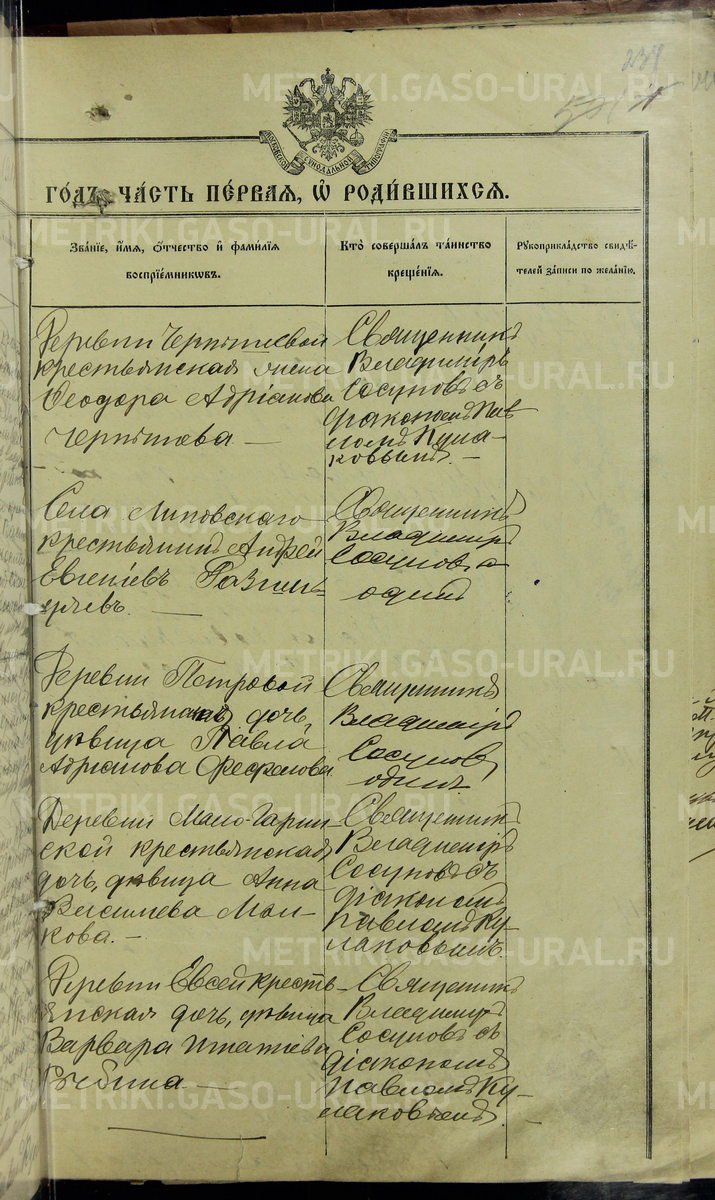 METRIKI.GASO-URAL.RU
МОСКОВСКОЙ СѴНОДАЛЬНОЙ ТИПОГРАФІИ
ГО́ДЪ ЧА́СТЬ ПЕ́РВАЯ, Ѽ РОДИ́ВШИХСЯ.
METRIKI.GASO-URAL.RU
Зва́ніе, и́мя, о́тчество и фами́лія
воспріе́мниковъ.
Кто̀ соверша́лъ та́инство
креще́нія.
Рукоприкла́дство свидѣ́-
телей за́писи по жела́нію.
Деревни Чернышевой
крестьянская жена
Ѳеодора Адріанова
Чернышева —
Священникъ
Владиміръ
Сосуновъ съ
діакономъ Пав
ломъ Кула-
ковымъ. —
METRIKI.GASO-URAL.RU
Села Липовскаго
крестьянинъ Андрей
Евгеніевъ
Священникъ
Владиміръ
Сосуновъ
одинъ
METRIKI.GASO-URAL.RU
Деревни Петровой
крестьянская дочь,
дѣвица Павла
Адріанова
Священникъ
Владиміръ
Сосуновъ
одинъ
METRIKI.GASO-URAL.RU
Деревни Мало-Гарин
ской крестьянская
дочь, дѣвица Анна
Василіева Мал-
кова. —
Священникъ
Владиміръ
Сосуновъ съ
діакономъ
Павломъ Ку-
лаковымъ.
METRIKI.GASO-URAL.RU
Деревни Евсей крестья
янская дочь, дѣвица
Варвара Игнатіева
—
Священникъ
Владиміръ
Сосуновъ съ
діакономъ
Павломъ Ку-
лаковымъ.
METRIKI.GASO-URAL.RU